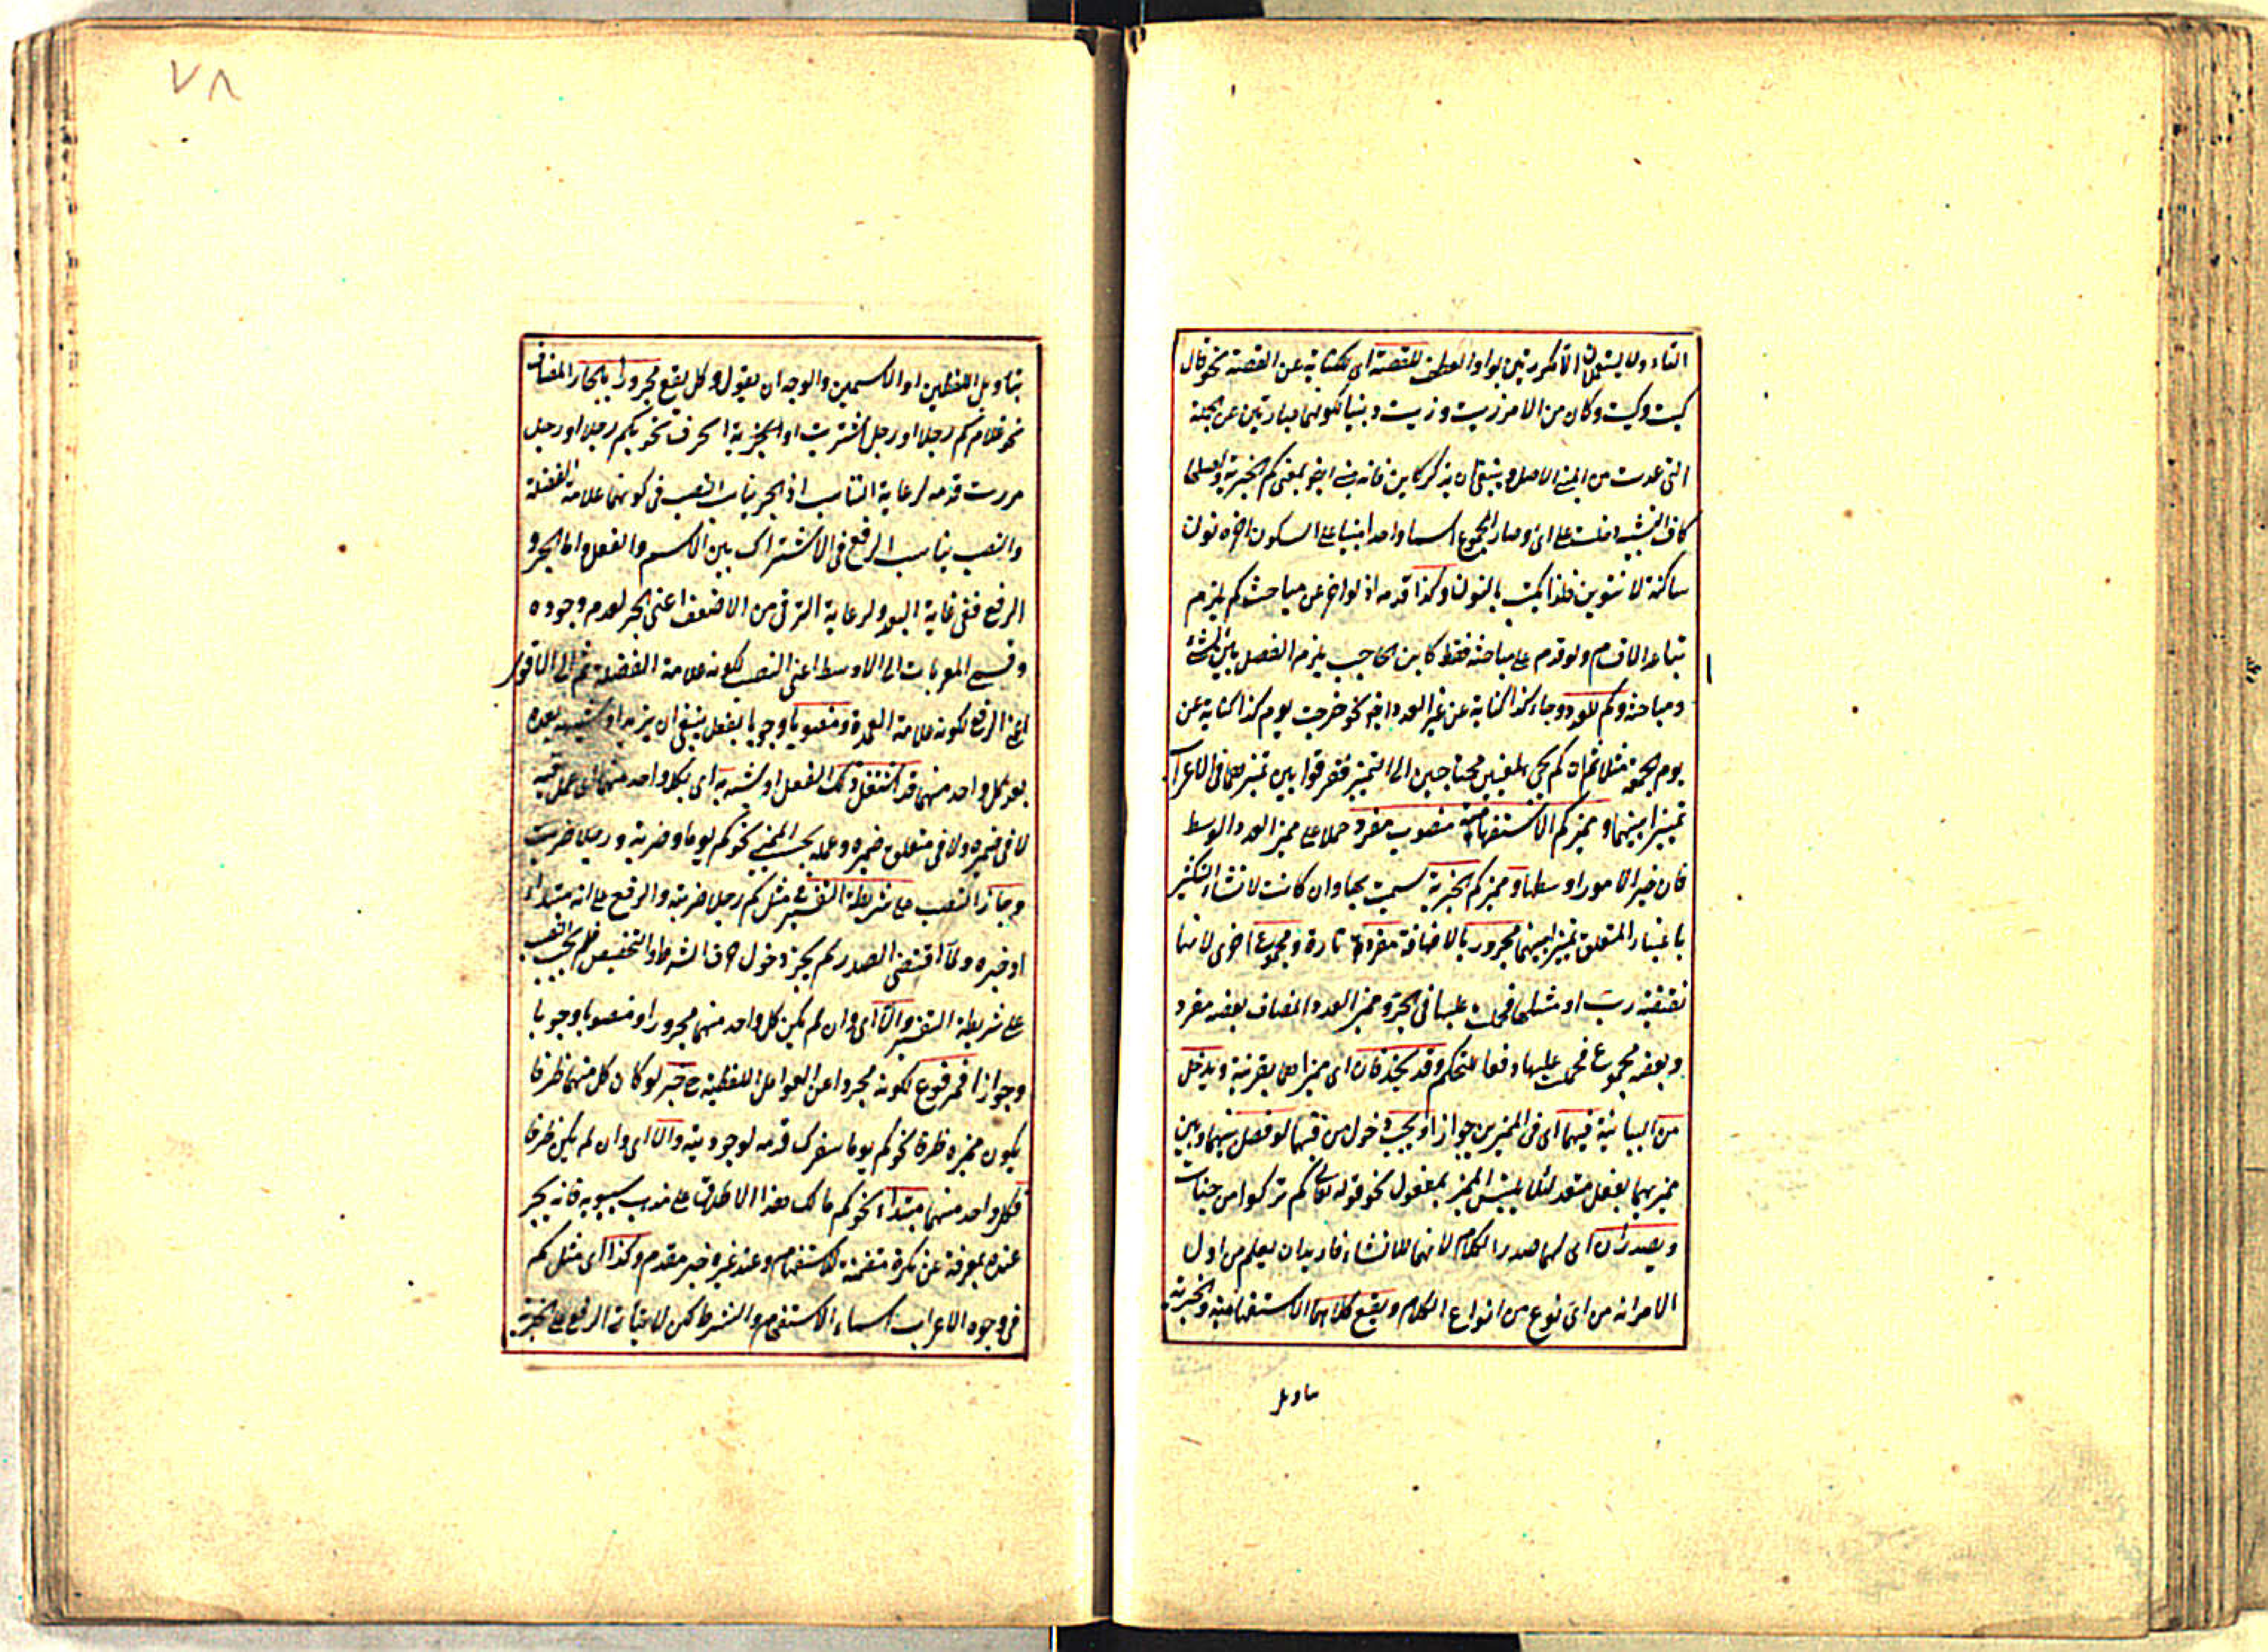 التاء ولا يستعملان الا مكررتين بواو العطف للقصة اى للكناية عن القصة نحو قال
كيت وكيت وكان من الامر زيت وزيت وبنيا لكونهما عبارتين عن الجملة
التى عدت من المبنى الاصل وينبغى ان يذكر كاين فانه بنى ايضا بمعنى كم الخبرية واصلها
كاف التشبيه دخلت على اىّ وصار المجموع اسما واحدا مبنيا على السكون اخره نون
ساكنة لا تنوين فلذا يكتب بالنون وكذا قدمه اذ لو اخر عن مباحث كم يلزم
تباعد الاقسام ولو قدم على مباحثه فقط كابن الحاجب يلزم الفصل بين الشئ
ومباحثه وكم للعدد وجاء كذا كناية عن غير العدد ايضا نحو خرجت يوم كذا كناية عن
يوم الجمعة مثلا ثم ان كم يجئ لمعنيين محتاجين الى التمييز ففرقوا بين تمييزهما فى الاعراب
تمييزا بينهما ومميز كم الاستفهامية منصوب مفرد حملا على مميز العدد الوسط
فان خير الامور اوسطها ومميز كم الخبرية سميت بها وان كانت لانشاء التكثير
باعتبار المتعلق تمييزا بينهما مجرور بالاضافة مفرد تارة ومجموع اخرى لانها
نقيضة ربّ او مثلها فحملت عليها فى الجرّ ومميز العدد المضاف بعضه مفرد
وبعضه مجموع فحملت عليها دفعا للتحكم وقد يحذفان اى مميزاهما بقرينة ويدخل
من البيانية فيهما اى فى المميزين جوازا ويجب دخول من فيهما لو فصل بينهما وبين
مميزيهما بفعل متعد لئلا يلتبس المميز بمفعول نحو قوله تعالى كم تركوا من جنات
ويصدران اى لهما صدر الكلام لانهما للانشاء فاريد ان يعلم من اول
الامر انه من اىّ نوع من انواع الكلام ويقع كلاهما الاستفهامية والخبرية
تاويل
٧٨
بتاويل اللفظين او الاسمين والوجه ان يقول وكل يقع مجرورا بالجار المضاف
نحو غلام كم رجلا او رجل اشتريت او الجزئية الحرف نحو بكم رجلا او رجل
مررت قدمه لرعاية التناسب اذ الجر يناسب النصب فى كونهما علامة الفضلة
والنصب يناسب الرفع فى الاشتراك بين الاسم والفعل واما الجر و
الرفع ففى غاية البعد ولرعاية الترقى من الاضعف اعنى الجر لعدم وجوده
و المعربات الى الاوسط اعنى النصب لكونه علامة الفضلة ثم الى الاقوى
اعنى الرفع لكونه علامة العمدة ومنصوبا وجوبا بفعل ينبغى ان يزيد او شبهه بعده
بعد كل واحد منهما قد اشتغل ذلك الفعل او شبهه به اى بكل واحد منهما اى عمل فيه
لا فى ضميره ولا فى متعلق ضميره وعمله بحسب المميز نحو كم يوما وضربة ورجلا ضربت
وجاز النصب على شريطة التفسير فى مثل كم رجلا ضربته والرفع على انه مبتداء
او خبره ولما اقتضى الصدر لم يجز دخول حرف الشرط والتحضيض فلم يجب النصب
على شريطة التفسير والا اى وان لم يكن كل واحد منهما مجرورا او منصوبا وجوبا
وجوازا فمرفوع لكونه مجردا عن العوامل اللفظية خبر لو كان كل منهما ظرفا
يكون مميزه ظرفا نحو كم يوما سفرك قدمه لوجوديته والا اى وان لم يكن ظرفا
فكل واحد منهما مبتداء نحو كم مالك هذا الاطلاق على مذهب سيبويه فانه يخبر
عنده بمعرفة عن نكرة متضمنة للاستفهام وعند غيره خبر مقدم وكذا اى مثل كم
فى وجوه الاعراب اسماء الاستفهام والشرط لكن الرفع على الخبرية